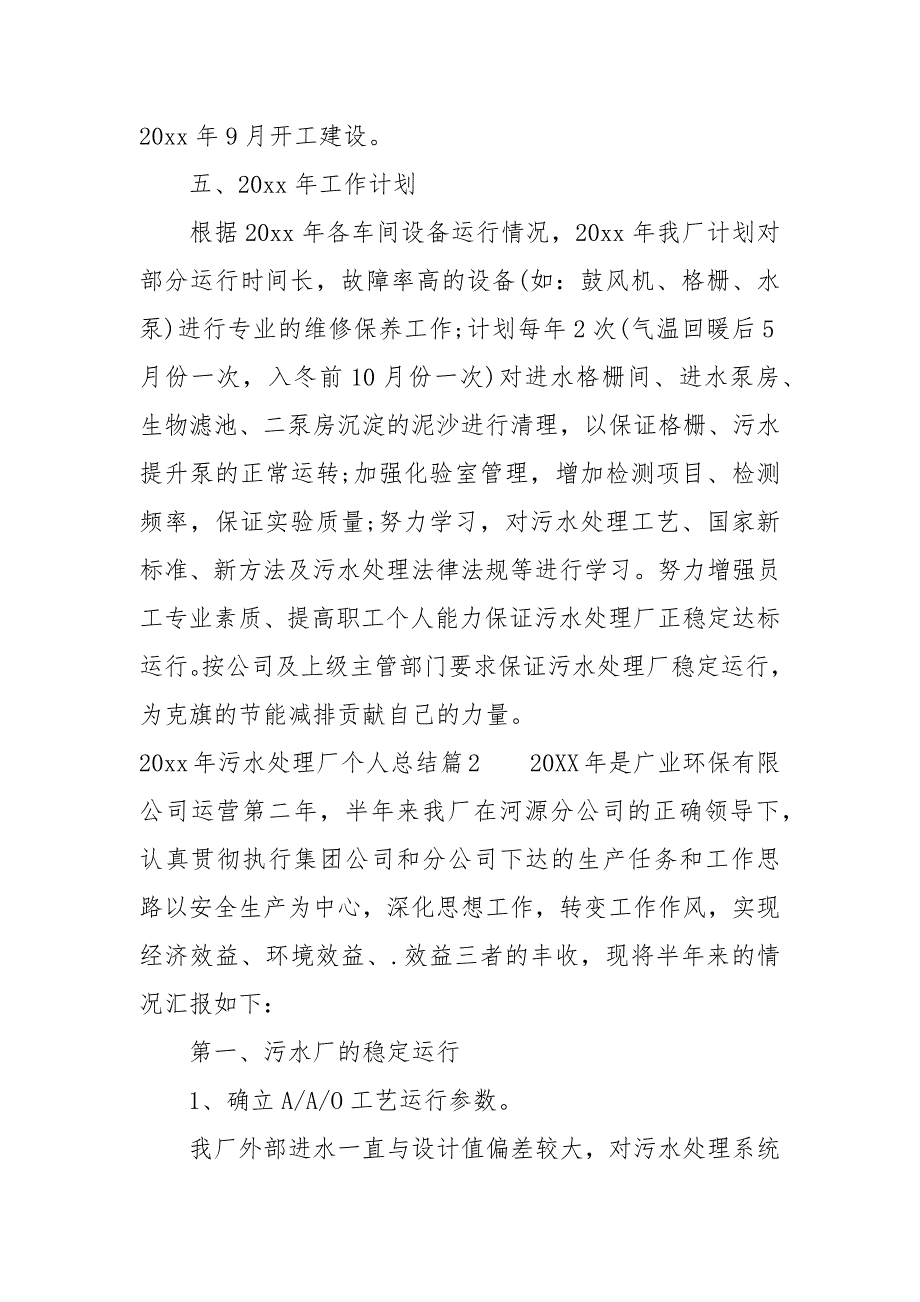 20xx 年 9 月开工建设。
五、20xx 年工作计划
根据 20xx 年各车间设备运行情况，20xx 年我厂计划对
部分运行时间长，故障率高的设备(如：鼓风机、格栅、水
泵)进行专业的维修保养工作;计划每年 2 次(气温回暖后 5
月份一次，入冬前 10 月份一次)对进水格栅间、进水泵房、
生物滤池、二泵房沉淀的泥沙进行清理，以保证格栅、污水
提升泵的正常运转;加强化验室管理，增加检测项目、检测
频率，保证实验质量;努力学习，对污水处理工艺、国家新
标准、新方法及污水处理法律法规等进行学习。努力增强员
工专业素质、提高职工个人能力保证污水处理厂正稳定达标
运行。按公司及上级主管部门要求保证污水处理厂稳定运行，
为克旗的节能减排贡献自己的力量。
20xx 年污水处理厂个人总结篇 2　　20XX 年是广业环保有限
公司运营第二年，半年来我厂在河源分公司的正确领导下，
认真贯彻执行集团公司和分公司下达的生产任务和工作思
路以安全生产为中心，深化思想工作，转变工作作风，实现
经济效益、环境效益、.效益三者的丰收，现将半年来的情
况汇报如下：
第一、污水厂的稳定运行
1、确立 A/A/O 工艺运行参数。
我厂外部进水一直与设计值偏差较大，对污水处理系统